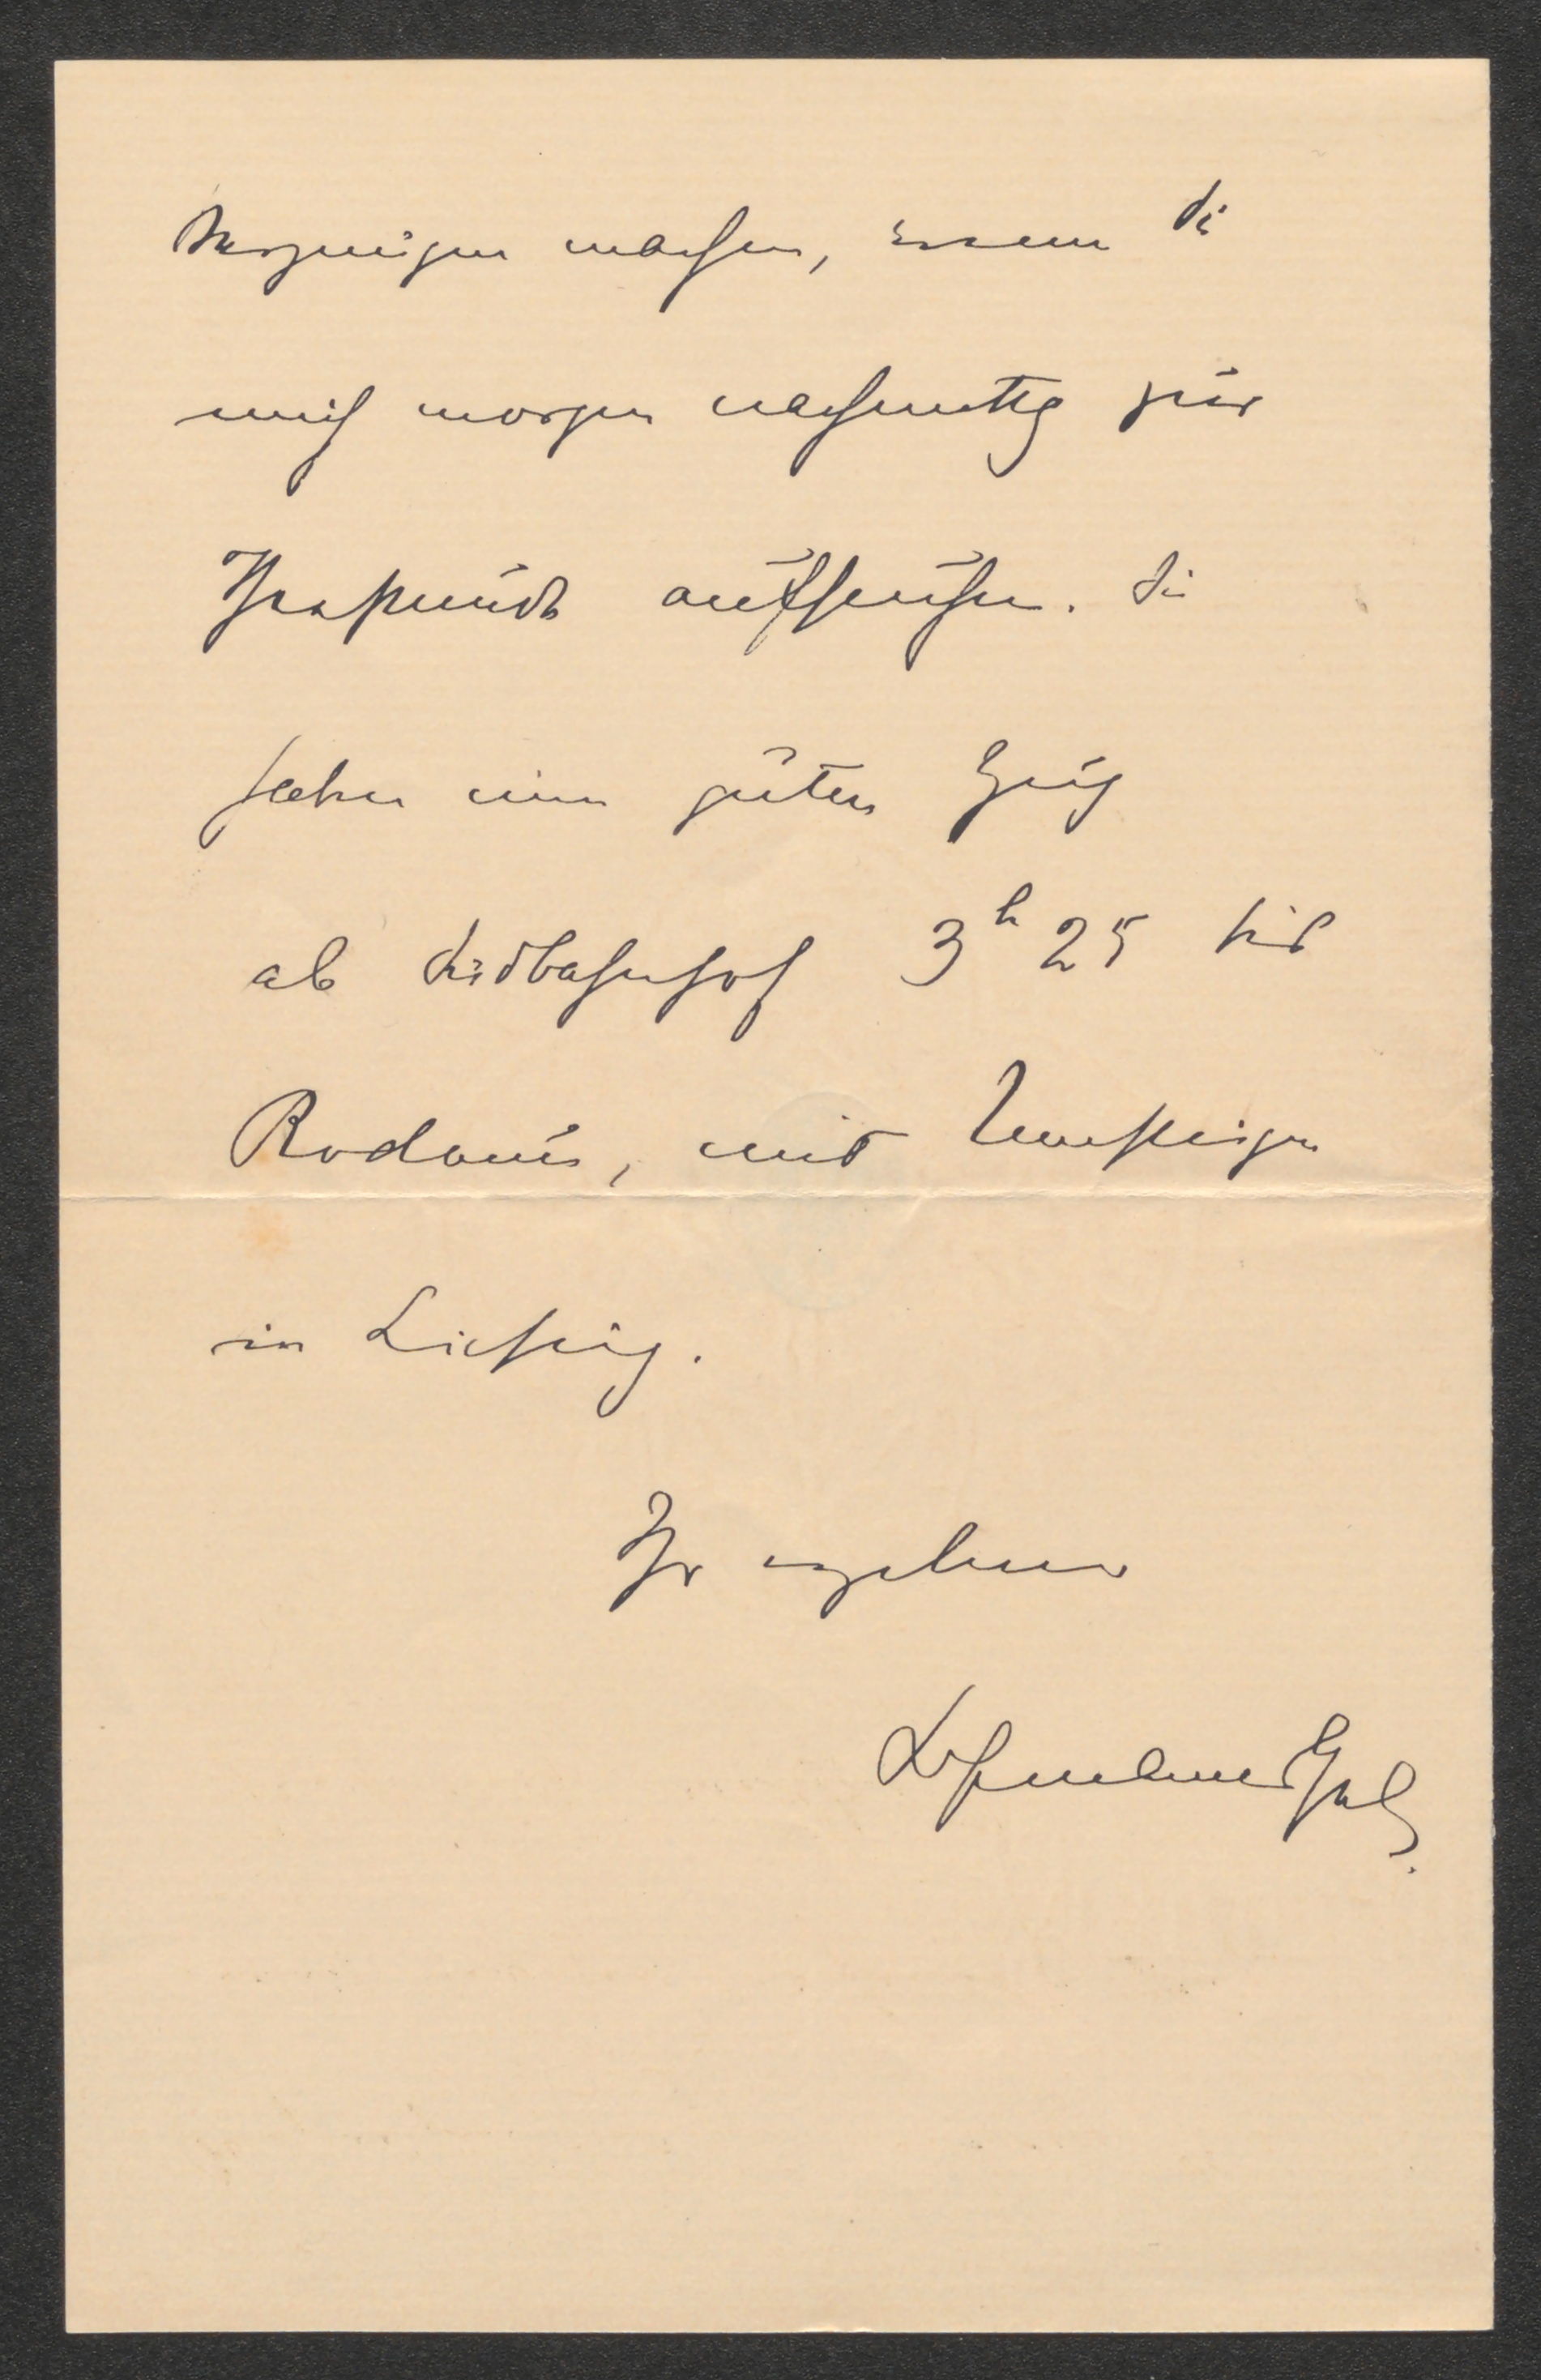 Vergnügen machen, wenn Sie
mich morgen nachmittg zur
aufsuchen. Sie
haben einen guten Zug
ab Südbahnhof 3h 25 bis
Rodaun, mit Umsteigen
in Liesing.
Ihr ergebener
Hofmannsthal.